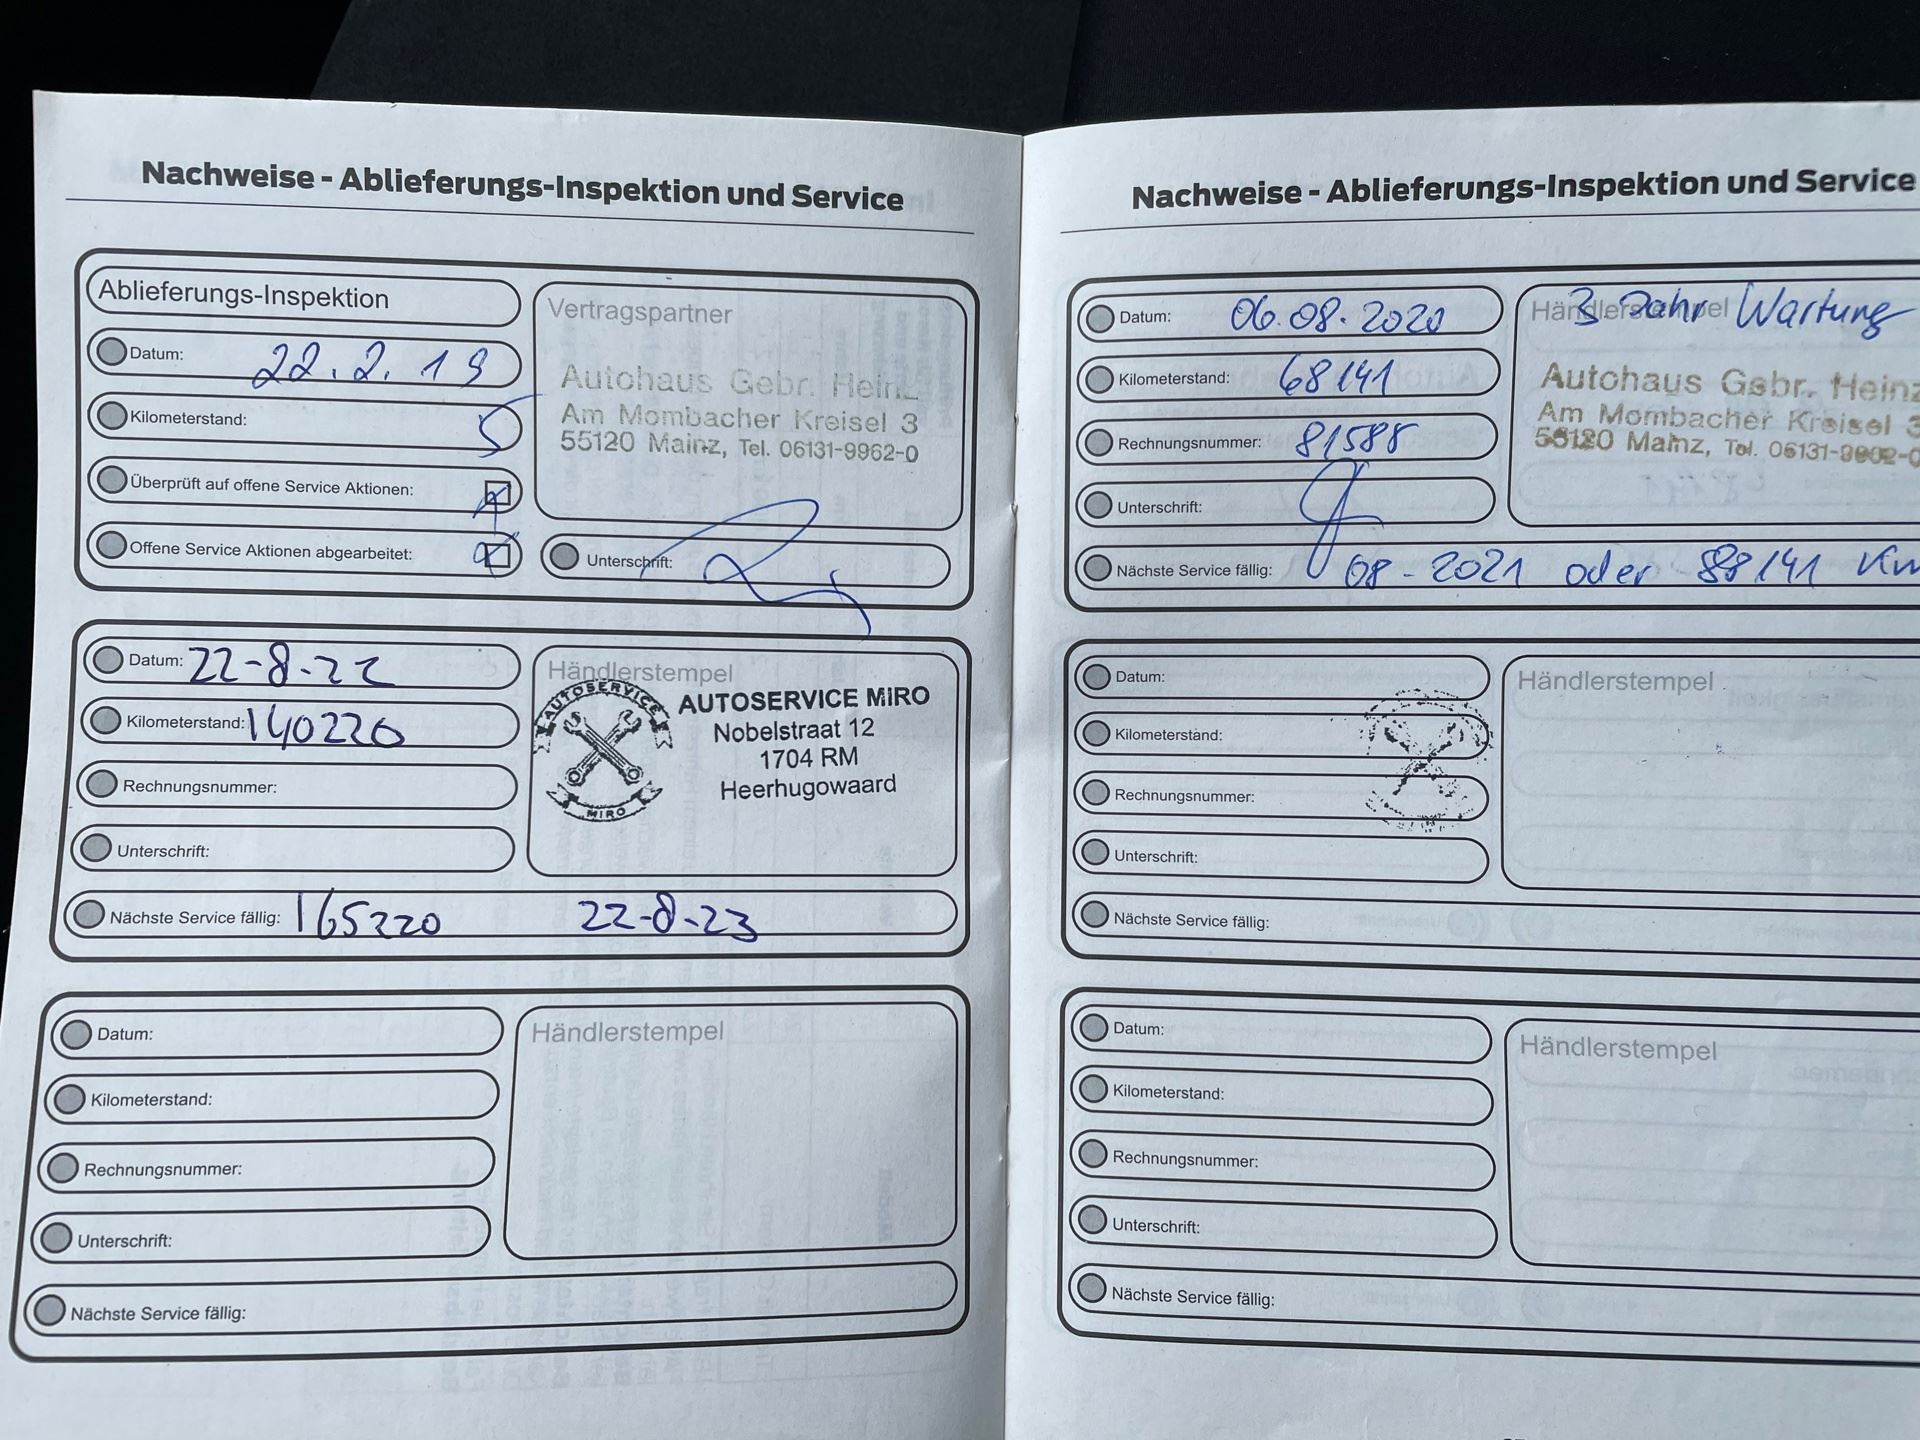 Nachweise - Ablieferungs-Inspektion und Service
Ablieferungs-Inspektion
Datum: 22.2.19
Kilometerstand: 5
Überprüft auf offene Service Aktionen:
Offene Service Aktionen abgearbeitet:
Vertragspartner
Autohaus Gebr. Heinz
Am Mombacher Kreisel 3
55120 Mainz, Tel. 06131-9962-0
Unterschrift:
Datum: 22-8-22
Kilometerstand: 140220
Rechnungsnummer:
Unterschrift:
Nächste Service fällig: 165220 22-8-23
Händlerstempel
AUTOSERVICE
MIRO
AUTOSERVICE MIRO
Nobelstraat 12
1704 RM
Heerhugowaard
Datum:
Kilometerstand:
Rechnungsnummer:
Unterschrift:
Nächste Service fällig:
Händlerstempel
Nachweise - Ablieferungs-Inspektion und Service
Datum: 06.08.2020
Kilometerstand: 68141
Rechnungsnummer: 81588
Unterschrift:
Nächste Service fällig: 08-2021 oder 88141 Km
Händlerstempel
3 Jahr Wartung
Autohaus Gebr. Heinz
Am Mombacher Kreisel 3
55120 Mainz, Tel. 06131-9962-0
Datum:
Kilometerstand:
Rechnungsnummer:
Unterschrift:
Nächste Service fällig:
Händlerstempel
Datum:
Kilometerstand:
Rechnungsnummer:
Unterschrift:
Nächste Service fällig:
Händlerstempel